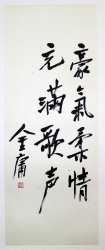 豪氣柔情
充滿歌声
金庸